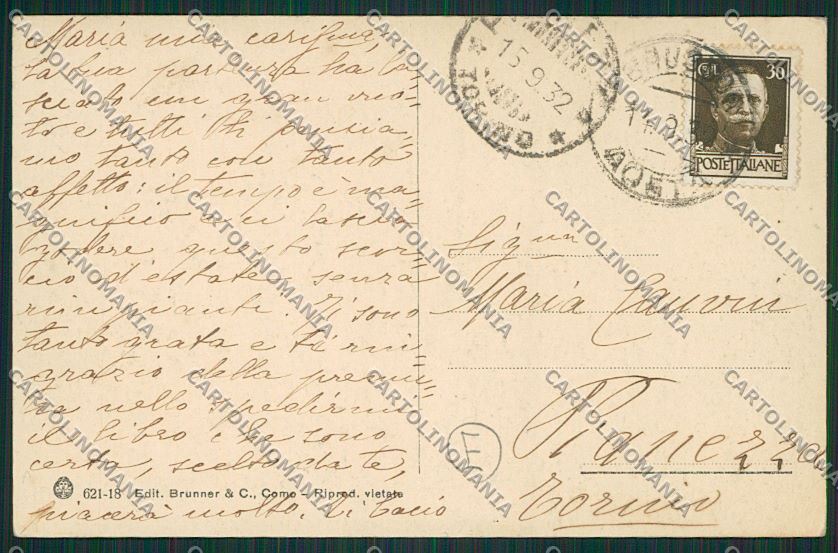 Maria mia carissma,
la tua partenza ha la-
sciato un gran vuo-
to e tutti ti pensia-
mo tanto con tanto
affetto: il tempo è ma-
gnifico e ci lascia
godere questo scor-
cio d'estate, senza
rimpianti. Ti sono
tanto grata e ti rin-
grazio della premu-
ra nello spedirmi
il libro che sono
certa, scelto da te,
piacerà molto. Ti bacio
621-18 Edit. Brunner & C., Como - Riprod. vietata
TORINO
15.9.32
BRUSSON
AOSTA
30
POSTE ITALIANE
Sig.na
Maria
Pianezza
Torino
CARTOLINOMANIA